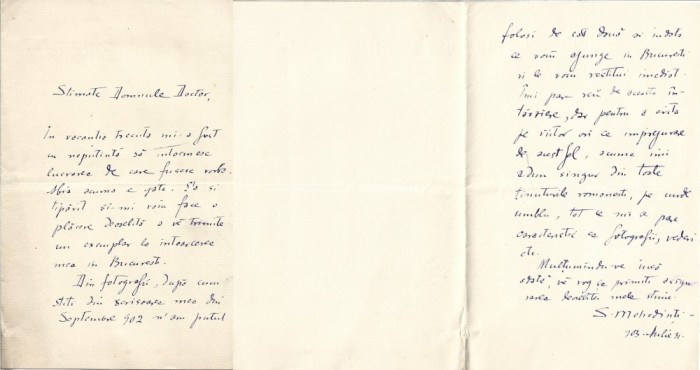 Stimate Domnule Doctor,
In vacanța trecută mi-a fost
cu neputință să întocmesc
lucrarea de care fusese vorba.
Abia acuma e gata. S'a și
tipărit și-mi voiu face o
plăcere deosebită a vă trimite
un exemplar la intoarcerea
mea in Bucuresti.
Din fotografii, după cum
știti din scrisoarea mea din
Septembre 902 n'am putut
folosi de cât două si indată
ce voiu ajunge in Bucuresti
vi le voiu restitui imediat.
Imi pare rău de aceasta în-
târziere, dar pentru a evita
pe viitor ori ce impregiurare
de acest fel, acuma imi
adun singur din toate
ținuturile romanesti, pe unde
umblu, tot ce mi se pare
caracteristic ca fotografii, vederi
etc.
Multumindu-vă încă
odată, vă rog să primiti asigu-
rarea deosebitei mele stime
S. Mehedinti -
903 Iulie 31.